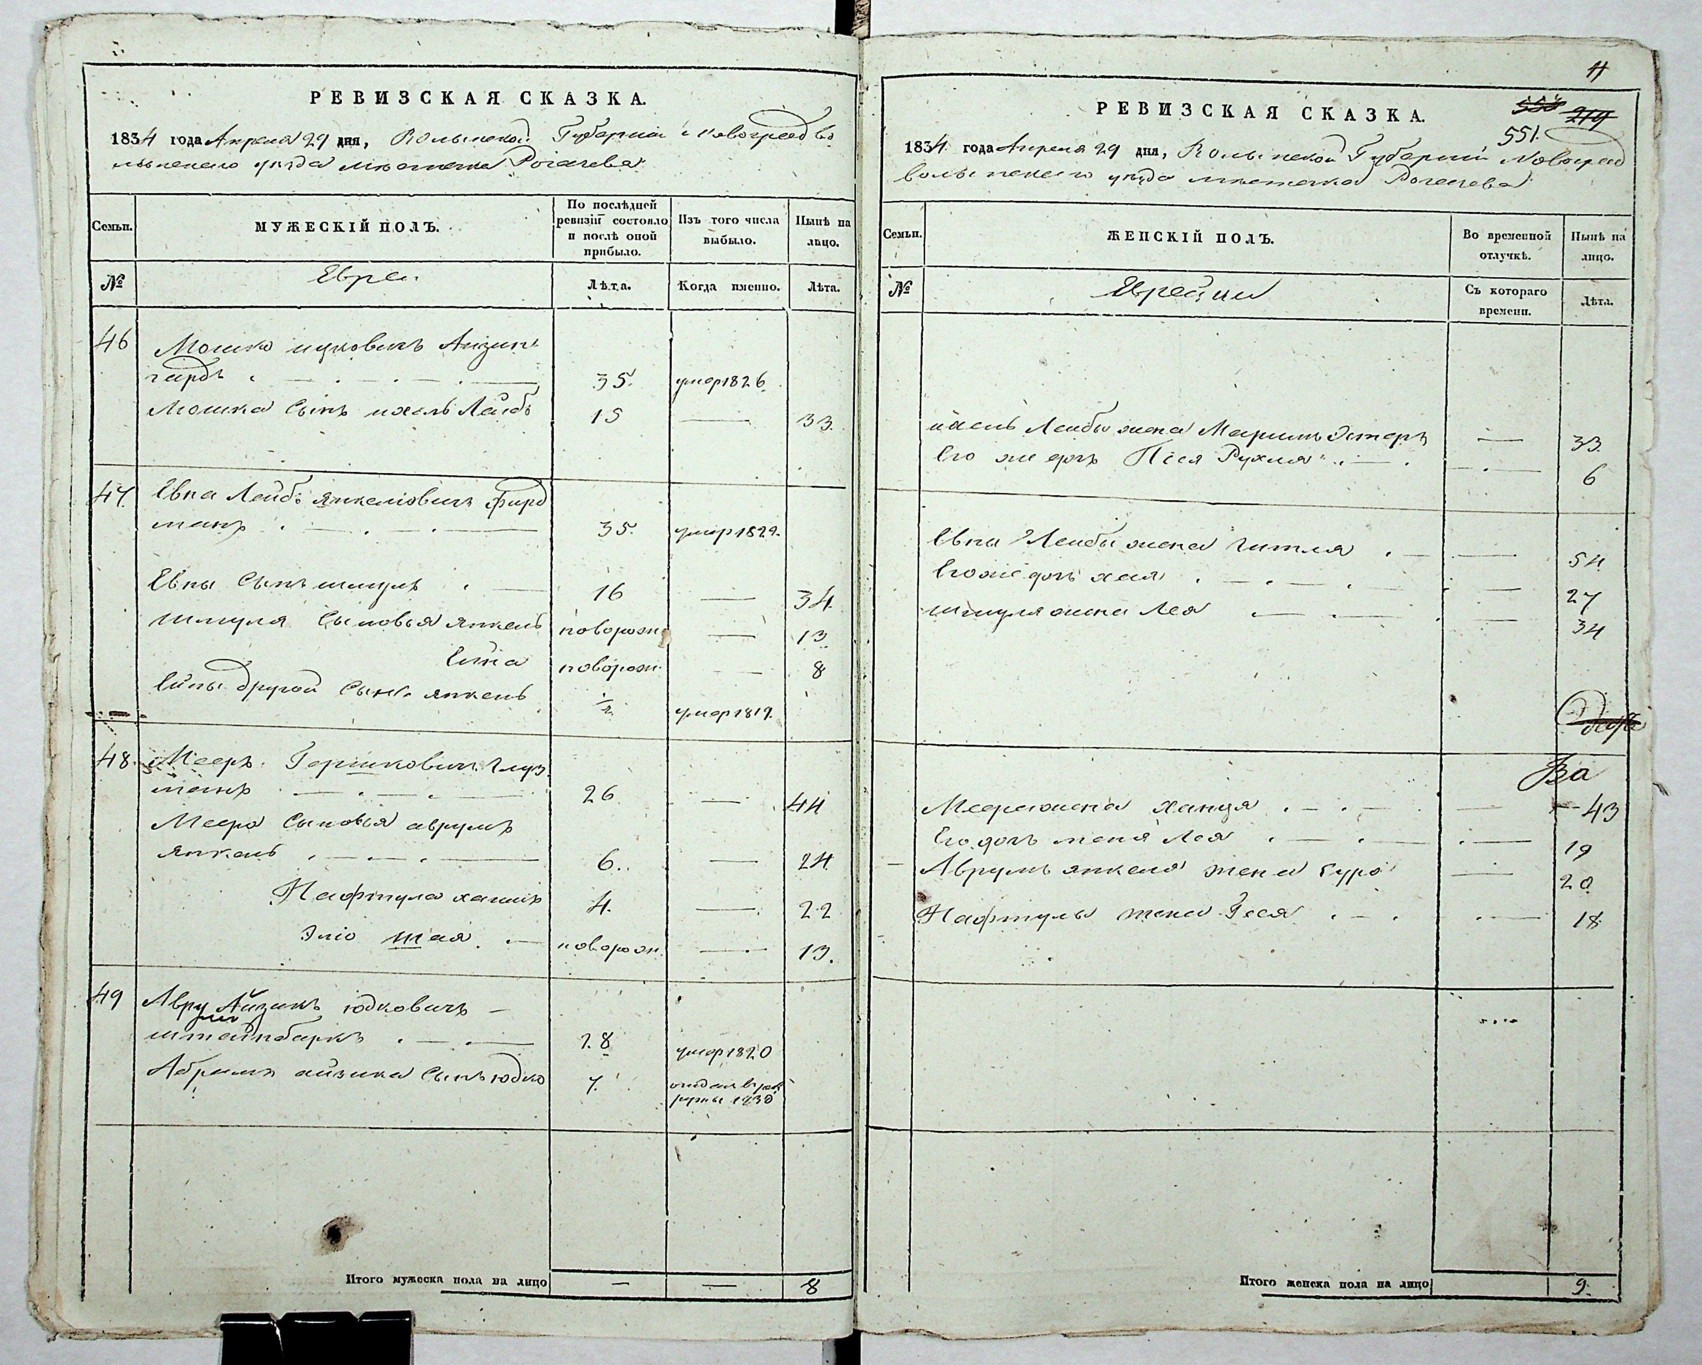 РЕВИЗСКАЯ СКАЗКА.
1834 года Апреля 29 дня, Волынской Губернии Новоградво
лынского уезда местечка Рогачева
Семьи.
МУЖЕСКІЙ ПОЛЪ.
По послѣдней
ревизіи состояло
и послѣ оной
прибыло.
Изъ того числа
выбыло.
Нынѣ на
лицо.
№
Евреи
Лѣта.
Когда именно.
Лѣта.
46
Мошко ицковичъ
гардъ 35. умер 1826.
Мошка сынъ ихель Лейбъ 15 33.
47.
Лейбъ янкелювичъ Фирд
манъ 35. умер 1829.
сынъ шмуль 16 34.
Шмуля сыновья янкель новорож. 13
новорож. 8
другой сынъ янкель 1/2 умер 1819.
48.
Мееръ Гершковичъ Глуз
манъ 26 44
Меера сыновья аврумъ
янкель 6. 24.
Нафтула хаимъ 4. 22
Эліо шая новорож. 13.
49
Аврумъ Айзикъ юдковичъ
штейнбаркъ 28 умер 1820
Абрумъ айзика сынъ юдко 7. отдан в рек
руты 1830
Итого мужеска пола на лицо 8
11
219
551.
РЕВИЗСКАЯ СКАЗКА.
1834 года Апреля 29 дня, Волынской Губернии Новоград
волынского уезда местечка Рогачева
Семьи.
ЖЕНСКІЙ ПОЛЪ.
Во временной
отлучкѣ.
Нынѣ на
лицо.
№
Еврейки
Съ котораго
времени.
Лѣта.
Лейбы жена Мариямъ Эстеръ 33.
Его же дочь Песя Рухля 6
Лейбы жена Гитля 54
Его же дочь хая 27
шмуля жена Лея 34
За
Меера жена ханця 43
Его дочь Лея 19
Аврумъ янкеля жена сура 20.
Нафтулы жена Геся 18
Итого женска пола на лицо 9.